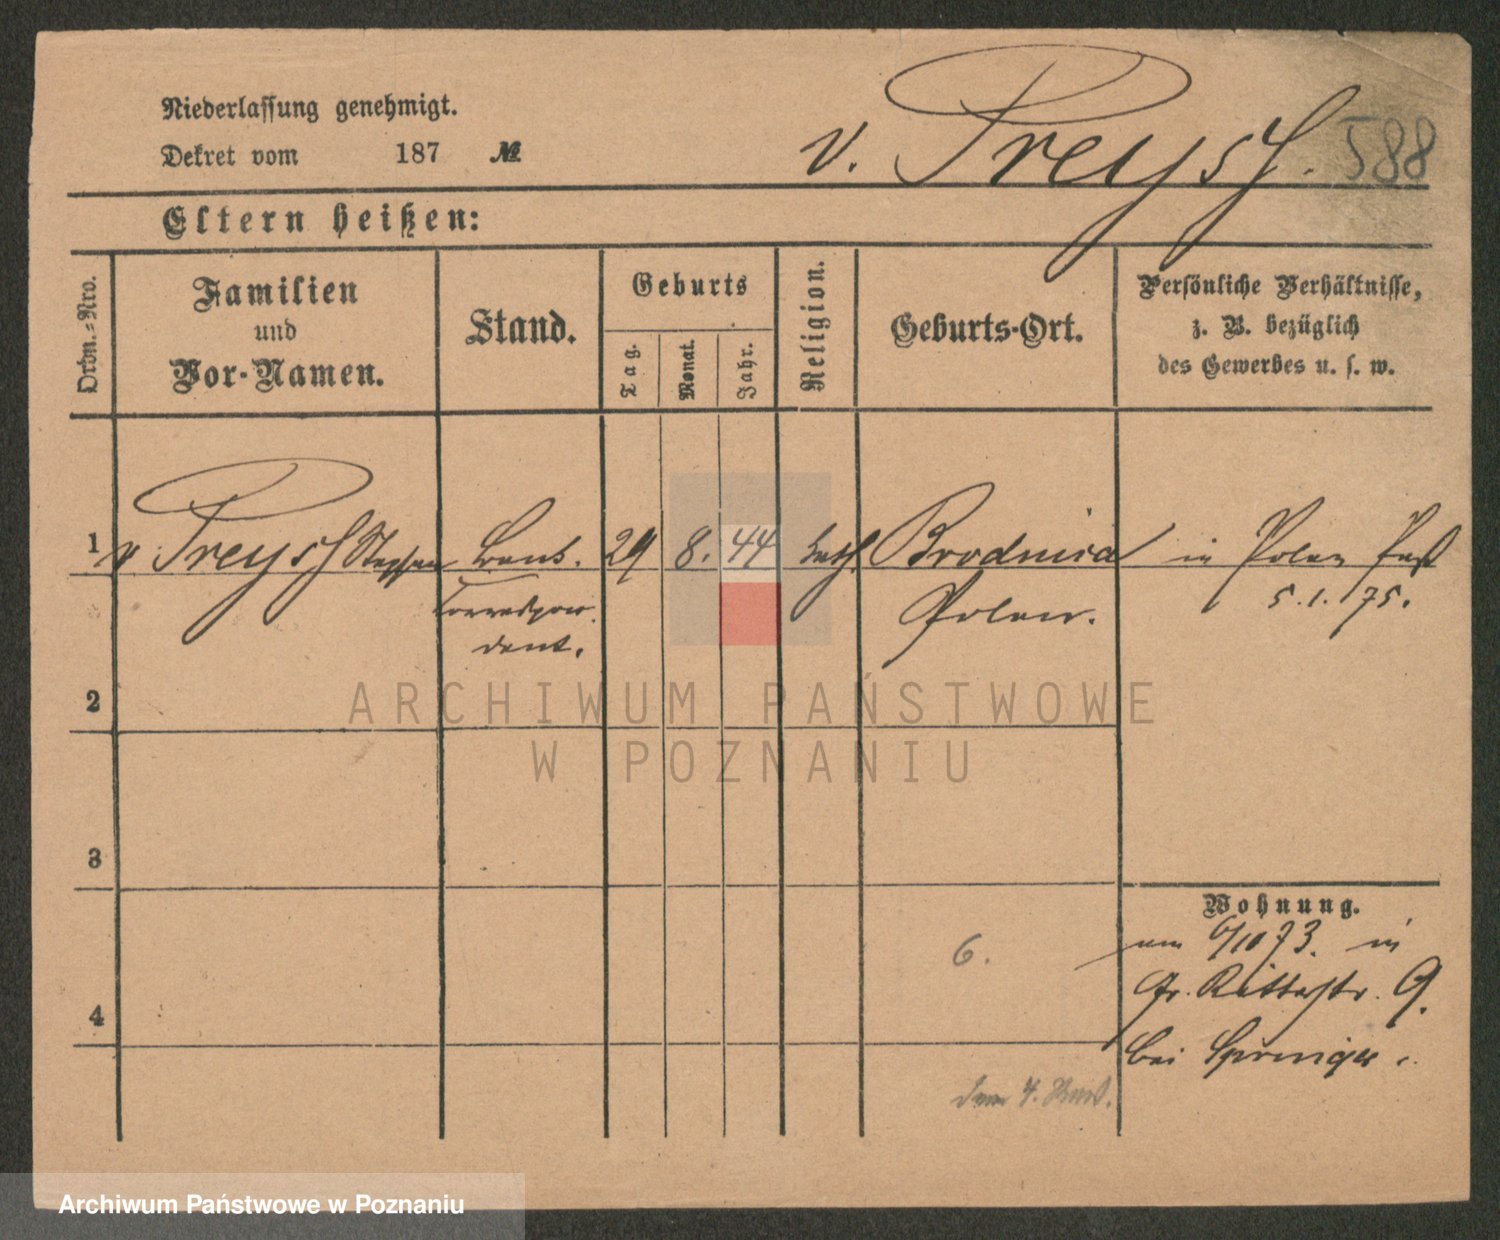 Niederlassung genehmigt.
v. Preyss. 588
Dekret vom 187 №
Eltern heißen:
Ordn.-Nro.
Familien
und
Vor-Namen.
Stand.
Geburts
Tag.
Monat.
Jahr.
Religion.
Geburts-Ort.
Persönliche Verhältnisse,
z. B. bezüglich
des Gewerbes u. s. w.
1 v Preyss Stephan Bank. 29 8. 44 kath. Brodnica in Polen Paß
Correspon- Polen. 5.1.75.
dent.
2
ARCHIWUM PAŃSTWOWE
W POZNANIU
3
Wohnung.
6. am 6/10 73. in
Gr. Ritterstr. 9.
4
bei Springer.
dem 4.
Archiwum Państwowe w Poznaniu